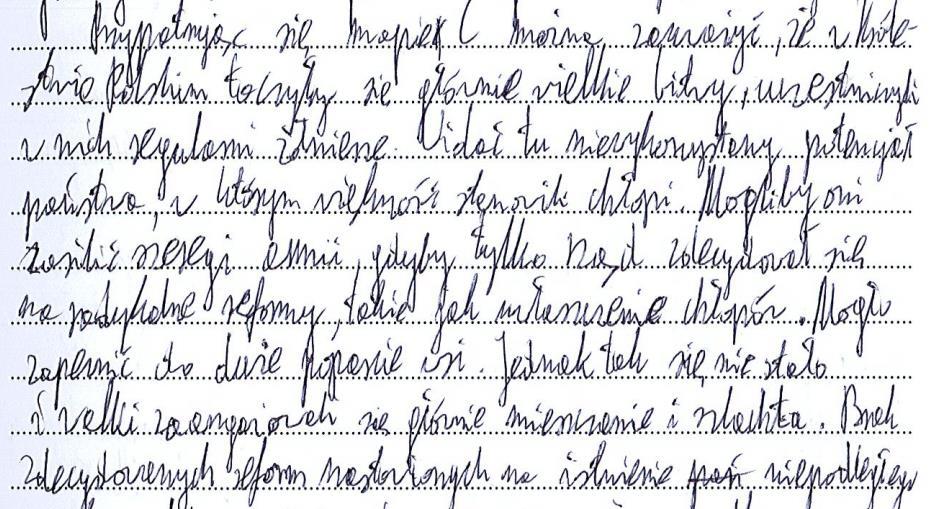 Przypatrując się mapie C można zauważyć, że w Króle-
stwie Polskim toczyły się głównie wielkie bitwy, uczestniczyli
w nich regularni żołnierze. Widać tu niewykorzystany potencjał
państwa, w którym większość stanowili chłopi. Mogliby oni
zasilić szeregi armii, gdyby tylko Rząd zdecydował się
na radykalne reformy, takie jak uwłaszczenie chłopów. Mogło
zapewnić to duże poparcie wsi. Jednak tak się nie stało
i w walki zaangażowali się głównie mieszczanie i szlachta. Brak
zdecydowanych reform nastawionych na istnienie niepodległego